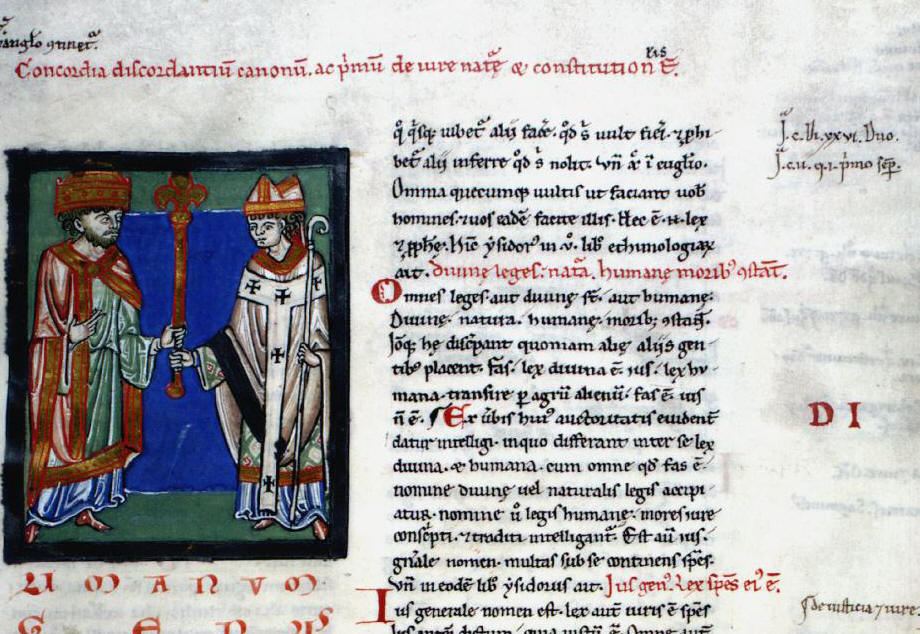 Concordia discordantiū canonū. ac p̄mū de iure natę̄ & constitutionis ē.
q̊ q̄sq; iubet᷑ alij facẽ. qđ s̄ uult fieri. ⁊ ꝓhi
bet᷑ alij inferre qđ s̄ nolit. Vñ x̄ ī euḡlio.
Omnia quecumq; uultis ut faciant uob̄
homines. ⁊ uos eadē facite illis. Hec ē. n. lex
⁊ ꝓphę. Hinc ysidor᷒ in .v. lib̄ ethimologiaꝝ
ait. diuinę leges. nat̄a. humanę morib᷒ ꝯstāt.
Omnes leges. aut diuinę st̄. aut humanę.
Diuinę. natura. humanę. morib; ꝯstant᷑.
Ioq; hę discrepant quoniam alię alijs gen
tib᷒ placent. fas. lex diuina ē. ius. lex hu
mana. transire ꝑ agrū alienū. fas ē. ius
ñ ē. Ex ūbis hui᷒ auctoritatis euident᷑
datur intelligi. in quo differant inter se lex
diuina. & humana. cum omne qđ fas ē.
nomine diuinę uel naturalis legis accipi
atur. nomine ū legis humanę. mores iure
conscr̄pti. & traditi intelligant᷑. Est aū ius.
gn̄ale nomen. multas sub se continens sp̄es.
Vñ in eodē lib̄ ysidorus ait. Ius gen᷒. Lex sp̄es ei᷒ ē.
Ius generale nomen est. lex aut̄ iuris ē sp̄es
DI
UMANUM
GENUS
J. c. vi. xxvi. Duo.
§ de iusticia ⁊ iure.